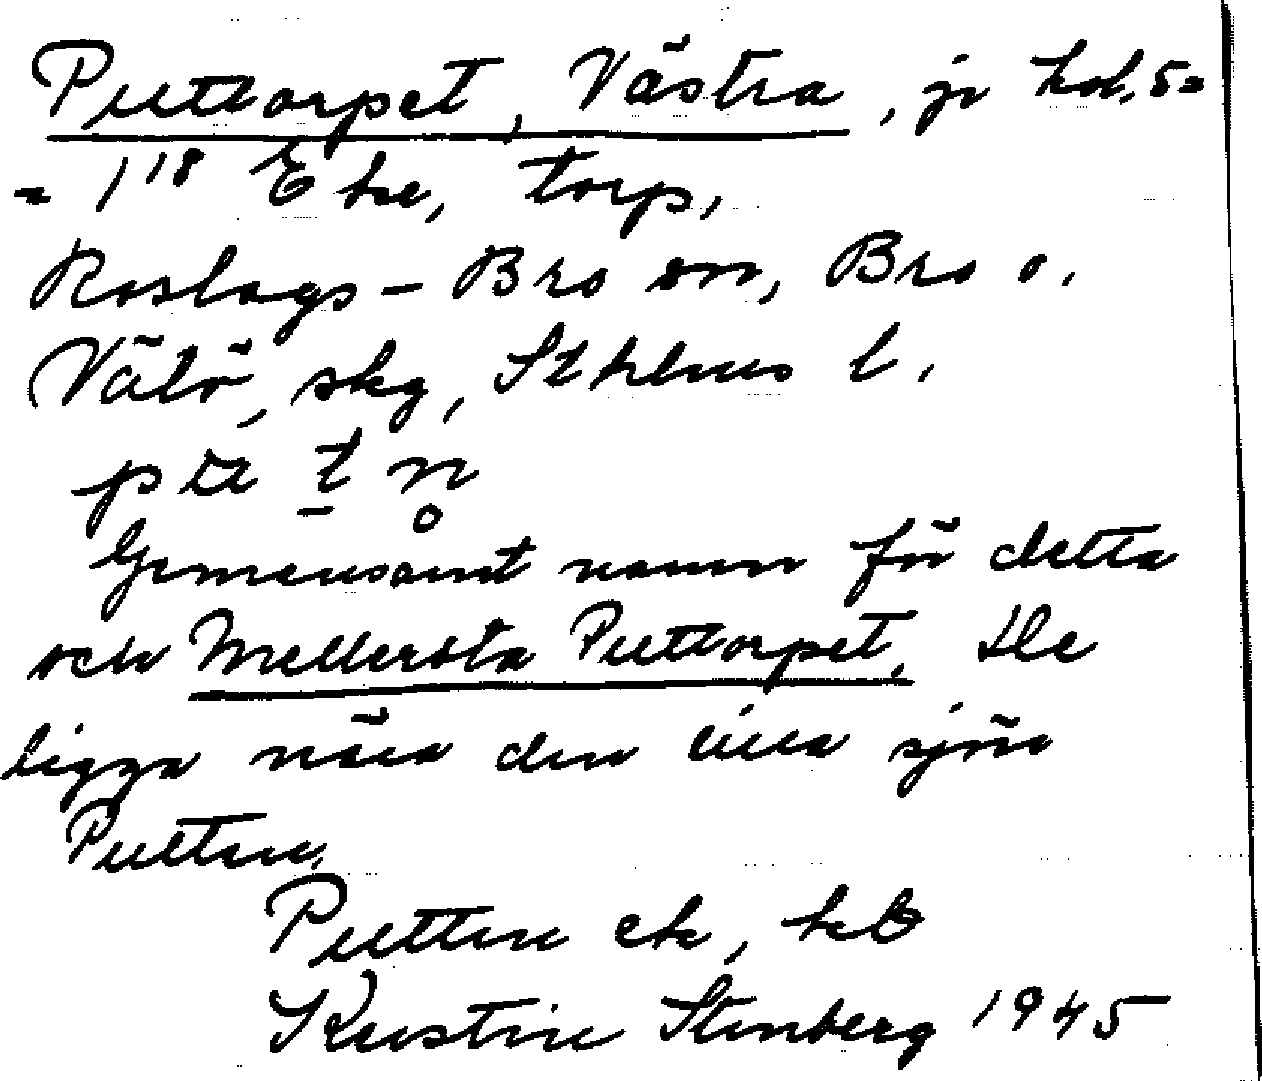 Puttorpet, Västra, jr kol. 5 =
= 1¹¹⁸ Eke, torp,
Roslags-Bro sn, Bro o.
Vätö, skg, Sthlms l.
Gemensamt namn för detta
och Mellersta Puttorpet. De
ligga nära den lilla sjön
Putten.
Putten ek, kb
Kerstin Stenberg 1945